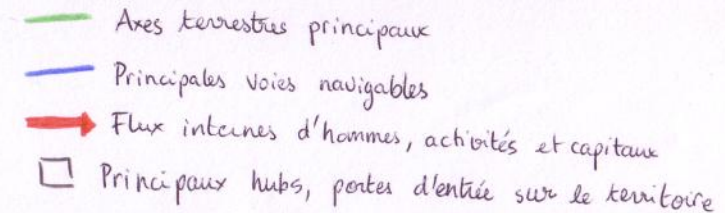 Axes terrestres principaux
Principales voies navigables
Flux internes d'hommes, activités et capitaux
Principaux hubs, portes d'entrée sur le territoire